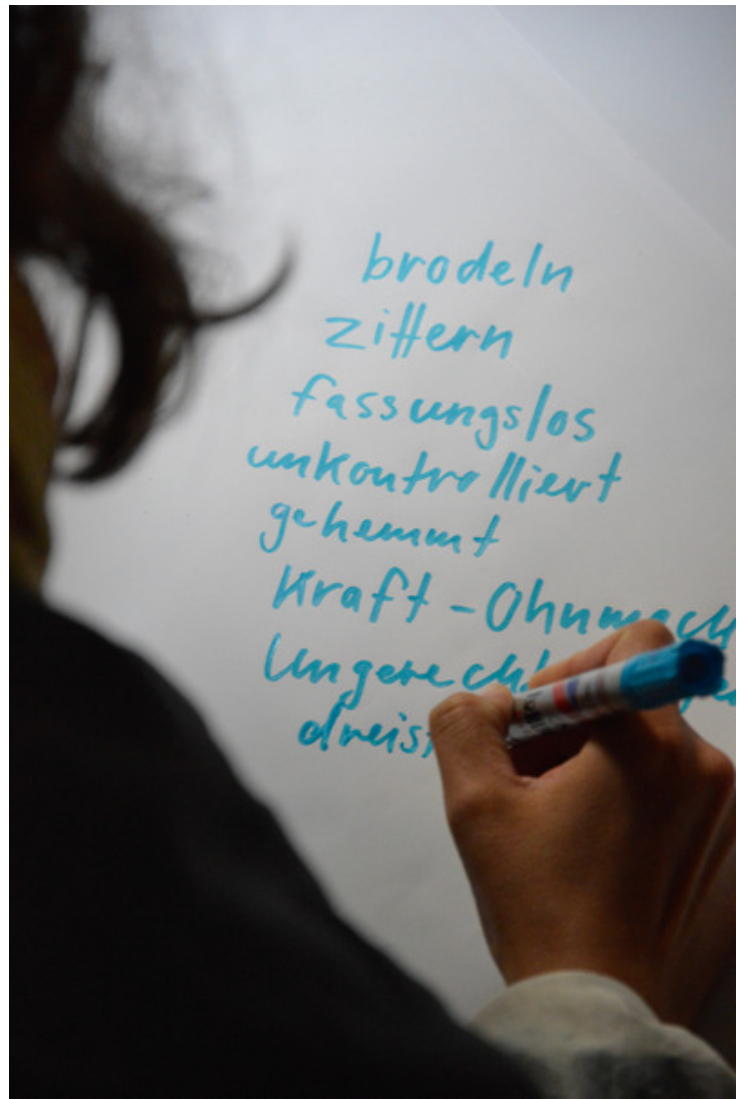 brodeln
zittern
fassungslos
unkontrolliert
gehemmt
Kraft - Ohnmach
dreist